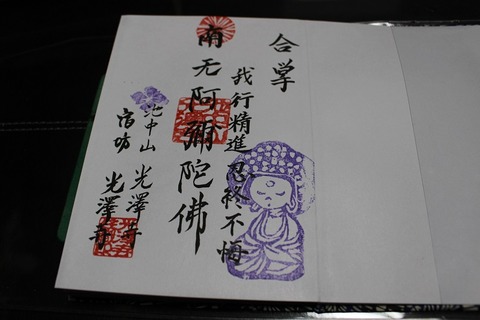 合掌
我行精進 忍終不悔
南无阿彌陀佛
光澤寺
宿坊 光澤寺